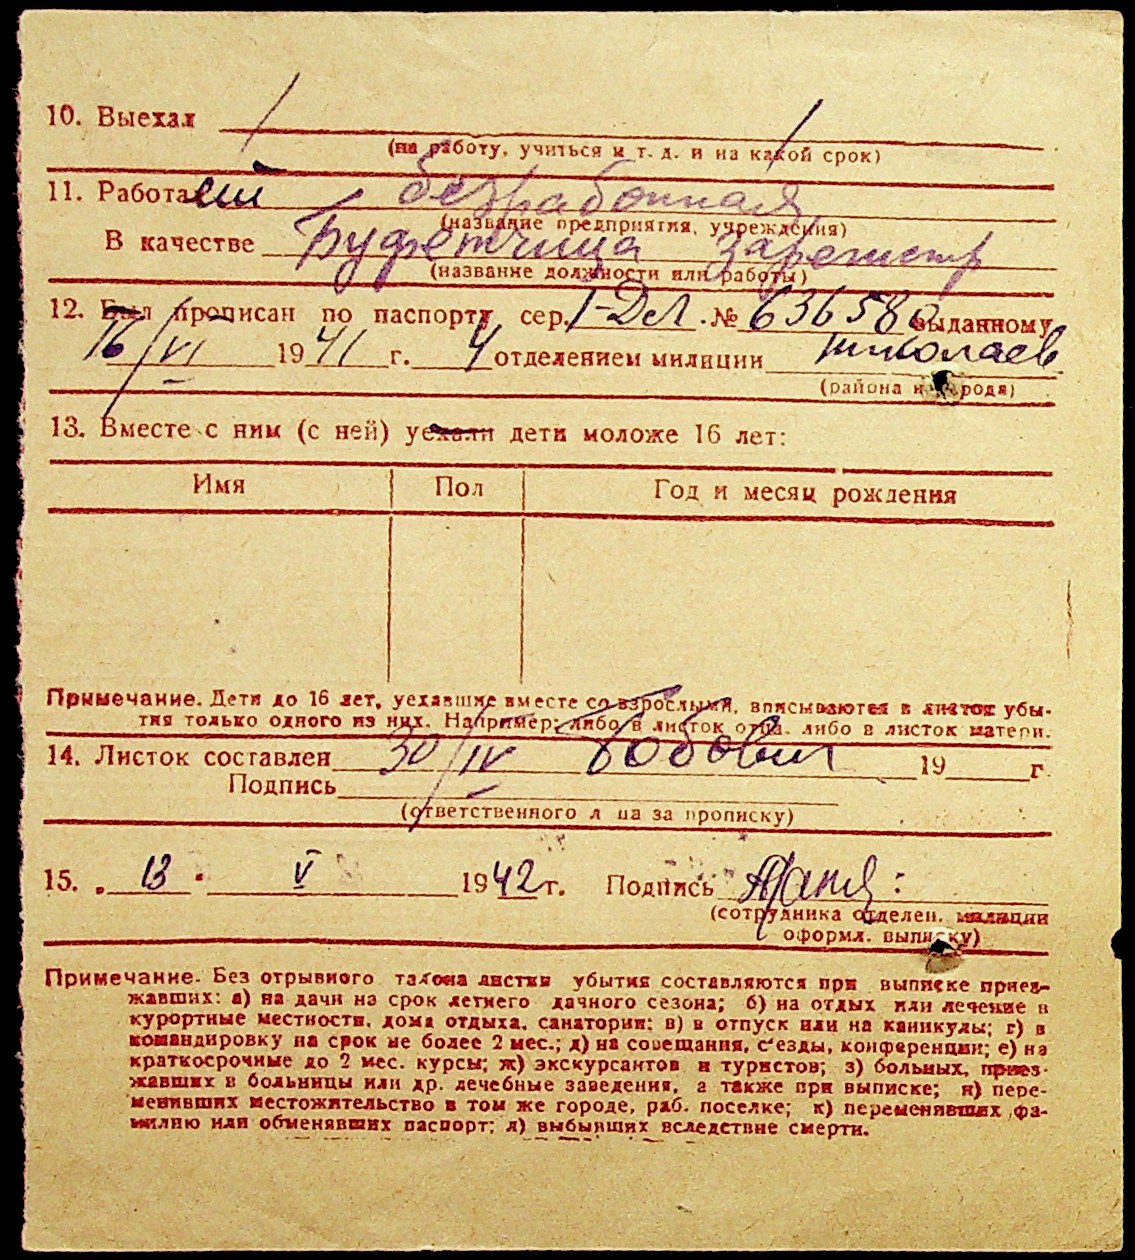 10. Выехал
(на работу, учиться и т. д. и на какой срок)
11. Работа безработная
(название предприятия, учреждения)
В качестве Буфетчица зарегистр
(название должности или работы)
12. Был прописан по паспорту сер. № 636580 выданному
16/VI 1941 г. 4 отделением милиции Николаев
(района и города)
13. Вместе с ним (с ней) уехали дети моложе 16 лет:
Имя Пол Год и месяц рождения
Примечание. Дети до 16 лет, уехавшие вместе со взрослыми, вписываются в листок убы-
тия только одного из них. Например: либо в листок отца, либо в листок матери.
14. Листок составлен 30/IV 19 г
Подпись
(ответственного лица за прописку)
15. „ 13 " V 1942 г. Подпись
(сотрудника отделен. милиции
оформл. выписку)
Примечание. Без отрывного талона листки убытия составляются при выписке приез-
жавших: а) на дачи на срок летнего дачного сезона; б) на отдых или лечение в
курортные местности, дома отдыха, санатории; в) в отпуск или на каникулы; г) в
командировку на срок не более 2 мес.; д) на совещания, с'езды, конференции; е) на
краткосрочные до 2 мес. курсы; ж) экскурсантов и туристов; з) больных, приез-
жавших в больницы или др. лечебные заведения, а также при выписке; и) пере-
менивших местожительство в том же городе, раб. поселке; к) переменивших фа-
милию или обменявших паспорт; л) выбывших вследствие смерти.